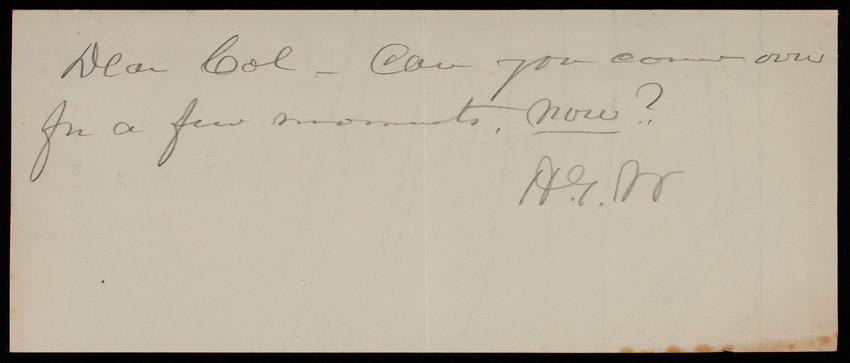 Dear Col - Can you come over
for a few moments, now?
H.G.W